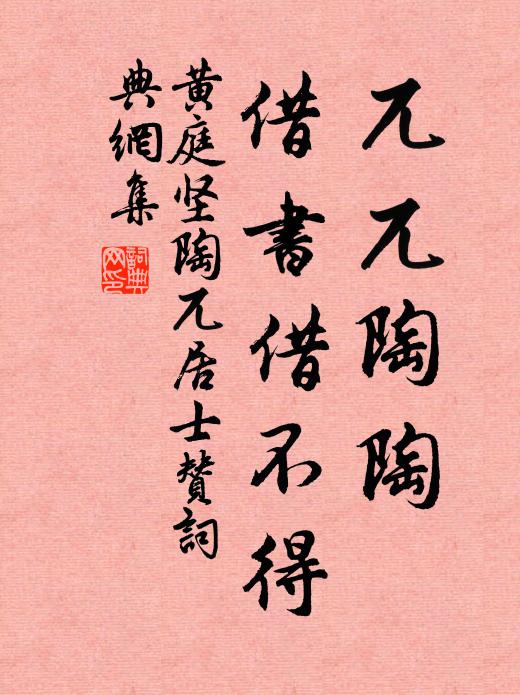 兀兀陶陶
借書借不得
黃庭坚陶兀居士贊詞
典網集
詞典
网印